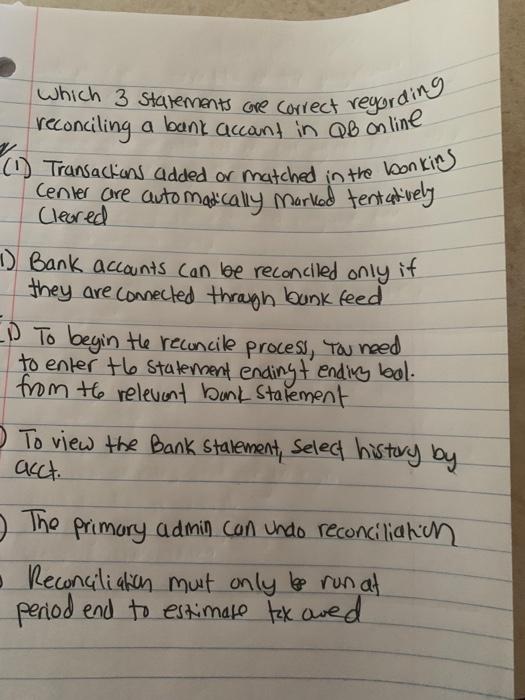 Which 3 statements are correct regarding
reconciling a bank account in QB online
(1) Transactions added or matched in the banking
center are automatically marked tentatively
cleared
1) Bank accounts can be reconciled only if
they are connected through bank feed
1) To begin the reconcile process, You need
to enter the statement ending + ending bal.
from the relevant bank statement
) To view the Bank statement, select history by
acct.
) The primary admin can undo reconciliation
Reconciliation must only be run at
period end to estimate tax owed